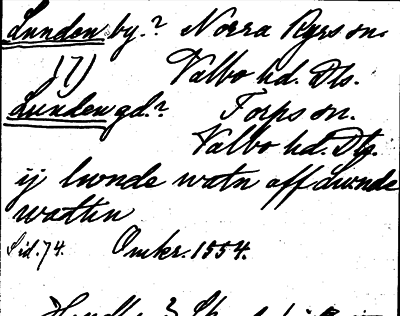 Lunden by.? Norra Ryrs sn.
17) Valbo hd. Dls.
Lunden gd.? Torps sn.
Valbo hd. Dls.
ij lwnde watn aff lwnde
wattin
Sid. 74. Omkr. 1554.